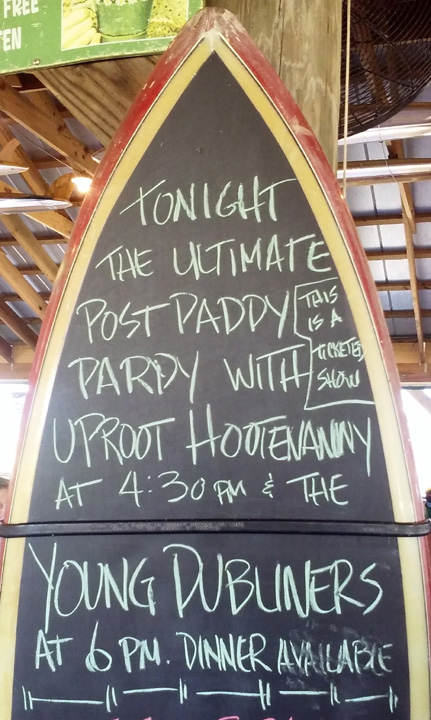 FREE
TEN
TONIGHT
THE ULTIMATE
POST PADDY
PARDY WITH
THIS
IS A
TICKETED
SHOW
UPROOT HOOTENANNY
AT 4:30 PM & THE
YOUNG DUBLINERS
AT 6 PM. DINNER AVAILABLE